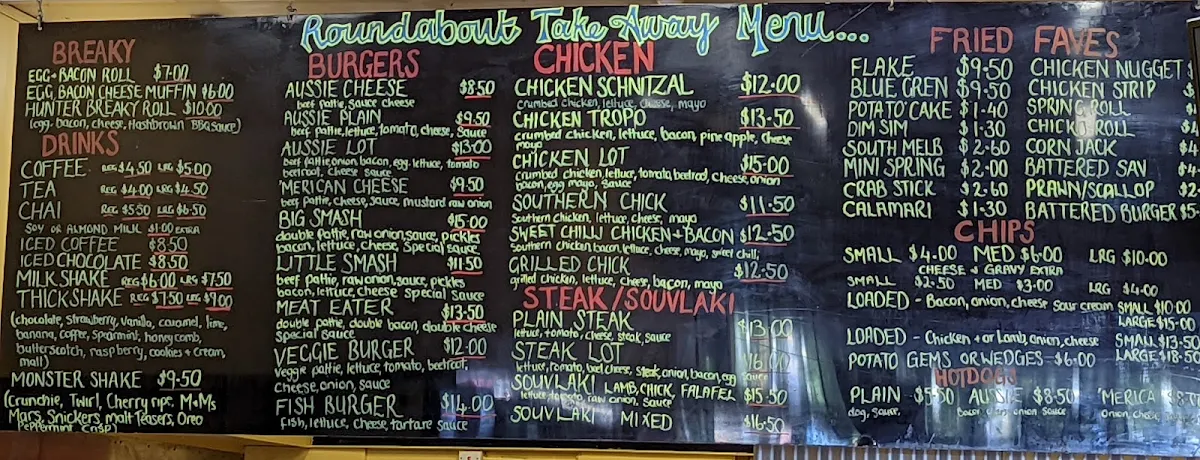 Roundabout Take Away Menu...
BREAKY
EGG + BACON ROLL $7.00
EGG, BACON CHEESE MUFFIN $6.00
HUNTER BREAKY ROLL $10.00
(egg, bacon, cheese, Hashbrown BBQ sauce)
DRINKS
COFFEE REG $4.50 LRG $5.00
TEA REG $4.00 LRG $4.50
CHAI REG $5.50 LRG $6.50
SOY OR ALMOND MILK $1.00 EXTRA
ICED COFFEE $8.50
ICED CHOCOLATE $8.50
MILKSHAKE REG $6.00 LRG $7.50
THICKSHAKE REG $7.50 LRG $9.00
(chocolate, strawberry, vanilla, caramel, lime,
banana, coffee, spearmint, honeycomb,
butterscotch, raspberry, cookies + cream,
malt)
MONSTER SHAKE $9.50
(Crunchie, Twirl, Cherry ripe, M+Ms
Mars, Snickers, malt Teasers, Oreo
Peppermint Crisp)
BURGERS
AUSSIE CHEESE $8.50
beef pattie, sauce cheese
AUSSIE PLAIN $9.50
beef pattie, lettuce, tomato, cheese, sauce
AUSSIE LOT $13.00
beef pattie, onion, bacon, egg, lettuce, tomato
beetroot, cheese sauce
'MERICAN CHEESE $9.50
beef pattie, cheese, sauce, mustard raw onion
BIG SMASH $15.00
double pattie, raw onion, sauce, pickles
bacon, lettuce, cheese, special sauce
LITTLE SMASH $11.50
beef pattie, raw onion, sauce, pickles
bacon, lettuce, cheese special sauce
MEAT EATER $13.50
double pattie, double bacon, double cheese
special sauce
VEGGIE BURGER $12.00
Veggie pattie, lettuce, tomato, beetroot,
cheese, onion, sauce
FISH BURGER $14.00
fish, lettuce, cheese, tartare sauce
CHICKEN
CHICKEN SCHNITZAL $12.00
crumbed chicken, lettuce, cheese, mayo
CHICKEN TROPO $13.50
crumbed chicken, lettuce, bacon, pineapple, cheese
mayo
CHICKEN LOT $15.00
crumbed chicken, lettuce, tomato, beetroot, cheese, onion
bacon, egg mayo, sauce
SOUTHERN CHICK $11.50
Southern chicken, lettuce, cheese, mayo
SWEET CHILLI CHICKEN + BACON $12.50
Southern chicken, bacon, lettuce, cheese, mayo, sweet chilli,
GRILLED CHICK $12.50
grilled chicken, lettuce, cheese, bacon, mayo
STEAK/SOUVLAKI
PLAIN STEAK $13.00
lettuce, tomato, cheese, steak, sauce
STEAK LOT 16.00
lettuce, tomato, beet, cheese, steak, onion, bacon, egg sauce
SOUVLAKI LAMB, CHICK, FALAFEL $15.50
lettuce, tomato, raw onion, sauce
SOUVLAKI MIXED $16.50
FRIED FAVES
FLAKE $9.50
BLUE GREN $9.50
POTATO CAKE $1.40
DIM SIM $1.30
SOUTH MELB $2.60
MINI SPRING $2.00
CRAB STICK $2.60
CALAMARI $1.30
CHICKEN NUGGET $
CHICKEN STRIP $
SPRING ROLL $
CHICKO ROLL $
CORN JACK $4
BATTERED SAV $4
PRAWN/SCALLOP $2
BATTERED BURGER $5
CHIPS
SMALL $4.00 MED $6.00 LRG $10.00
CHEESE + GRAVY EXTRA
SMALL $2.50 MED $3.00 LRG $4.00
LOADED - Bacon, onion, cheese sour cream SMALL $10.00
LARGE $15.00
LOADED - Chicken + or Lamb, onion, cheese SMALL $13.50
LARGE $18.50
POTATO GEMS OR WEDGES $6.00
HOTDOGS
PLAIN $5.50 AUSSIE $8.50 'MERICA
dog, sauce, onion sauce onion cheese